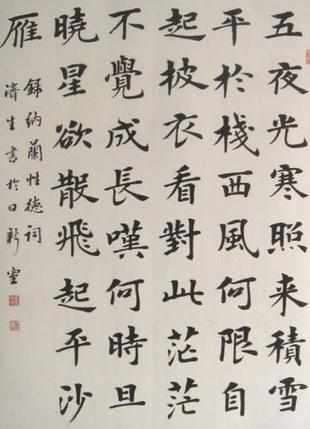 五夜光寒照来積雪
平於棧西風何限自
起披衣看對此茫茫
不覺成長嘆何時旦
曉星欲散飛起平沙
雁
錄納蘭性德詞
濟生書於日新堂